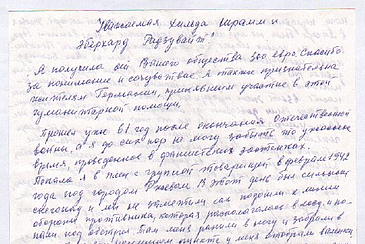 Уважаемая Хильда Шрамм и
Эберхард Радзувайт!
Я получила от Вашего общества 300 евро. Спасибо
за понимание и сочувствие. Я также признательна
жителям Германии, принявшим участие в этой
гуманитарной помощи.
Прошел уже 61 год после окончания Отечественной
войны, а я до сих пор не могу забыть то ужасное
время, проведенное в фашистских застенках.
Попала я в плен с группой товарищей в феврале 1942
года под городом Ржевом. В этот день был сильный
снегопад и мы не заметили как подошли к линии
обороны противника, которая располагалась в лесу и по-
пали под обстрел. Там меня ранили в ногу и забрали в
пункте у меня отобрали валенки